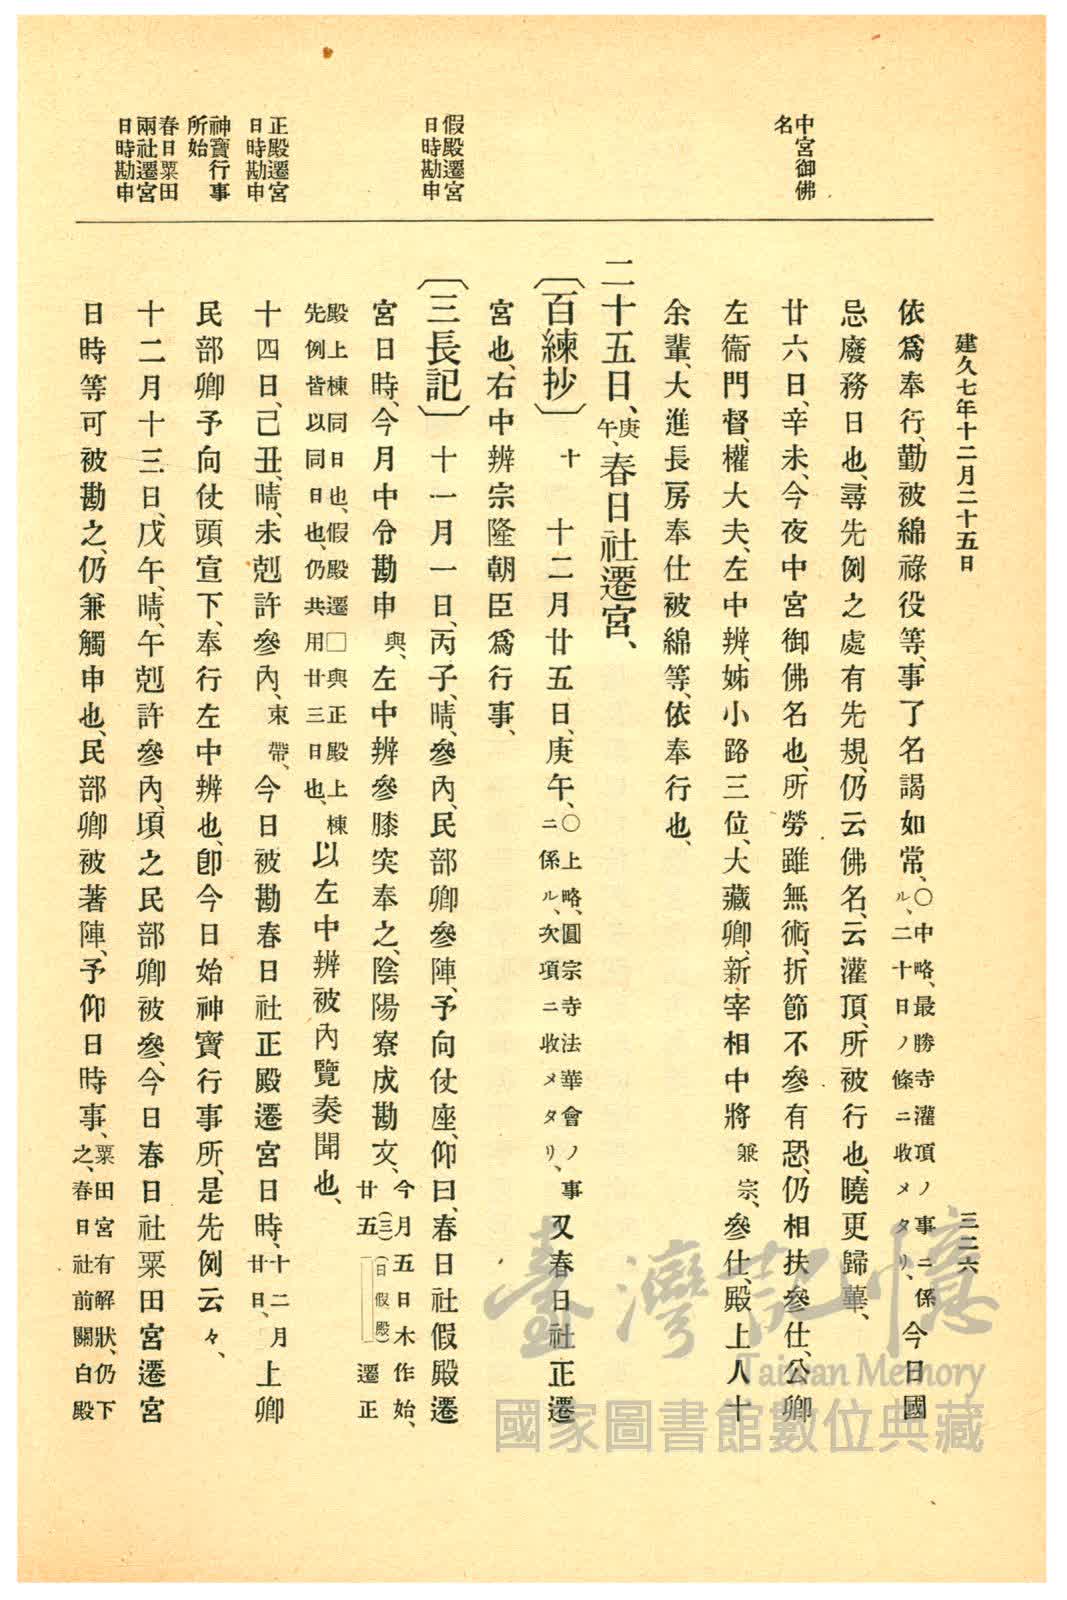 建久七年十二月二十五日
三二六
中宮御佛
名
假殿遷宮
日時勘申
正殿遷宮
日時勘申
神寶行事
所始
春日粟田
兩社遷宮
日時勘申
依爲奉行、勤被綿祿役等、事了名謁如常、〇中略、最勝寺灌頂ノ事ニ係ル、二十日ノ條ニ收メタリ、今日國
忌廢務日也、尋先例之處有先規、仍云佛名、云灌頂、所被行也、曉更歸華、
廿六日、辛未、今夜中宮御佛名也、所勞雖無術、折節不參有恐、仍相扶參仕、公卿
左衞門督、權大夫、左中辨、姊小路三位、大藏卿、新宰相中將兼宗、參仕、殿上人十
余輩、大進長房奉仕被綿等、依奉行也、
二十五日、庚午、春日社遷宮、
〔百練抄〕十 十二月廿五日、庚午、〇上略、圓宗寺法華會ノ事ニ係ル、次項ニ收メタリ、又春日社正遷
宮也、右中辨宗隆朝臣爲行事、
〔三長記〕十一月一日、丙子、晴、參內、民部卿參陣、予向仗座、仰曰、春日社假殿遷
宮日時、今月中令勘申與、左中辨參膝突奉之、陰陽寮成勘文、今月五日木作始、廿五(三)(日假殿)遷正
殿上棟同日也、假殿遷□與正殿上棟先例皆以同日也、仍共用廿三日也、以左中辨被內覽奏聞也、
十四日、己丑、晴、未剋許參內、束帶、今日被勘春日社正殿遷宮日時、十二月廿日、上卿
民部卿予向仗頭宣下、奉行左中辨也、卽今日始神寶行事所、是先例云々、
十二月十三日、戊午、晴、午剋許參內、頃之民部卿被參、今日春日社粟田宮遷宮
日時等可被勘之、仍兼觸申也、民部卿被著陣、予仰日時事、粟田宮有解狀、仍下之、春日社前關白殿
臺灣記憶
Taiwan Memory
國家圖書館數位典藏